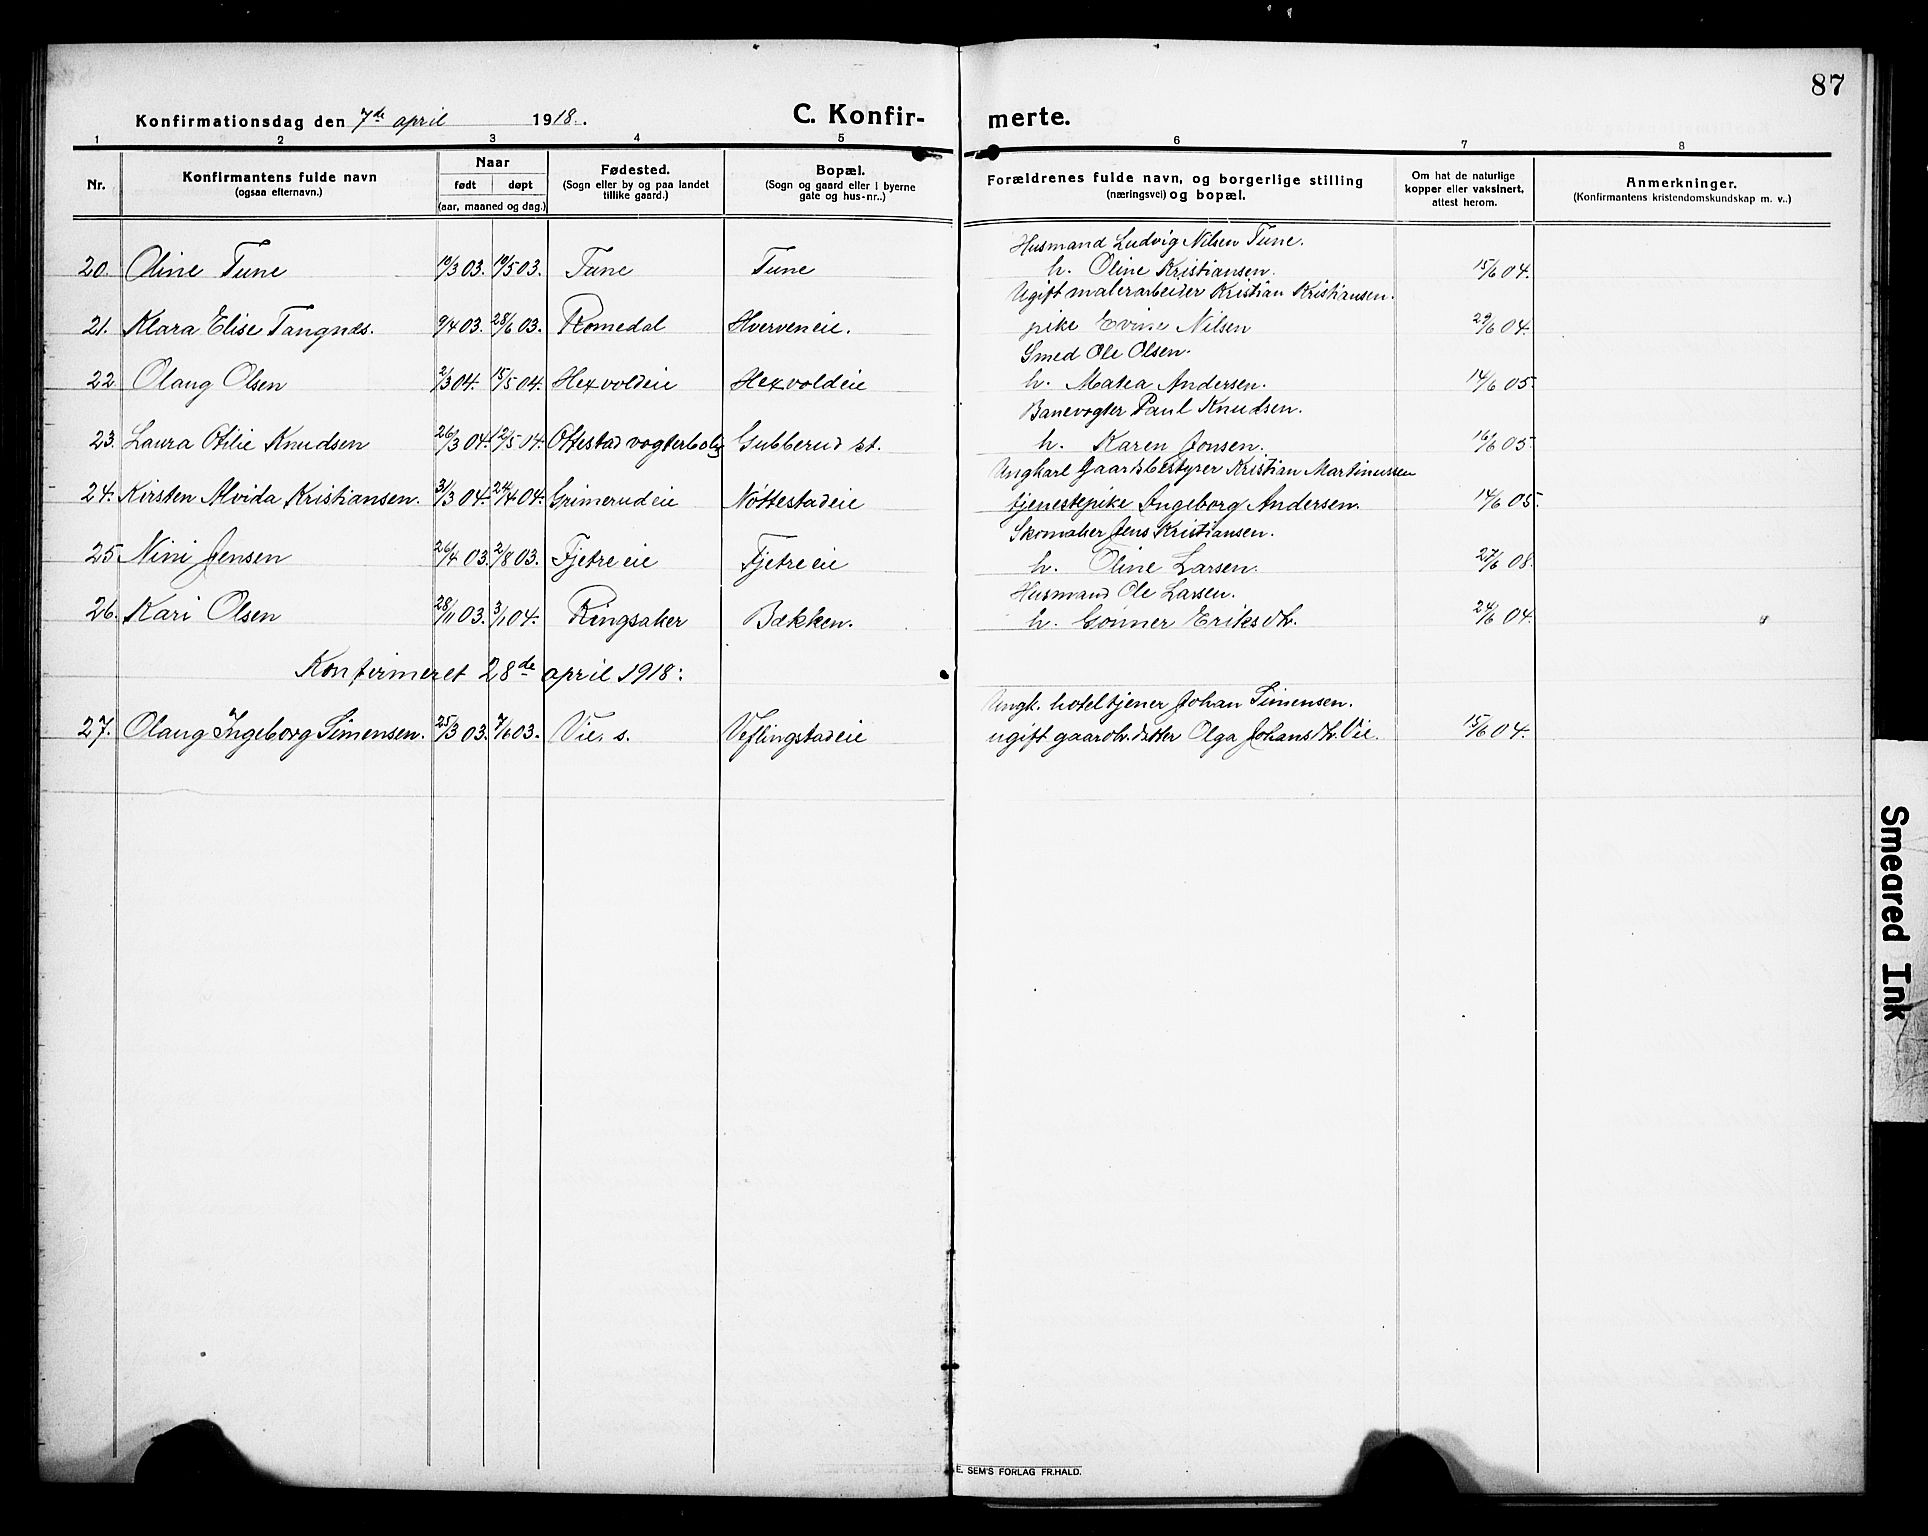 87
Konfirmationsdag den 7de april 1918.
C. Konfir-merte.
1 2 3 4 5 6 7 8
Nr.
Konfirmantens fulde navn
(ogsaa efternavn.)
Naar
født døpt
(aar, maaned og dag.)
Fødested.
(Sogn eller by og paa landet
tillike gaard.)
Bopæl.
(Sogn og gaard eller i byerne
gate og hus-nr..)
Forældrenes fulde navn, og borgerlige stilling
(næringsvei) og bopæl.
Om hat de naturlige
kopper eller vaksinert,
attest herom.
Anmerkninger.
(Konfirmantens kristendomskundskap m. v..)
Husmand Ludvig Nilsen Tune.
20. Oline Tune 19/3 03. 19/5 03. Tune Tune h. Oline Kristiansen. 15/6 04.
Ugift malerarbeider Kristian Kristiansen.
21. Klara Elise Tangnes. 9/4 03. 28/6 03. Romedal Hverveneie. pike Evine Nilsen 29/6 04.
Smed Ole Olsen.
22 Olaug Olsen 2/3 04. 15/5 04. Hexvoldeie Hexvoldeie h. Matea Andersen. 14/6 05.
Banevogter Paul Knudsen.
23. Laura Otilie Knudsen 26/3 04. 12/5 14. Ottestad vogterbolig Gubberud st. h. Karen Jonsen. 16/6 05.
Ungkarl Gaardsbestyrer Kristian Martinussen
24. Kirsten Alvida Kristiansen. 31/3 04. 24/4 04. Grimerudeie Nøttestadeie tjenestepike Ingeborg Andersen. 14/6 05.
Skomaker Jens Kristiansen.
25. Nini Jensen 26/4 03. 2/8 03. Fjetre eie Fjetre eie h. Oline Larsen. 27/6 08.
Husmand Ole Larsen.
26. Kari Olsen 28/11 03. 3/1 04. Ringsaker Bækken. h. Gönner Eriksdtr. 24/6 04.
Konfirmeret 28de april 1918:
Ungk. hoteltjener Johan Simensen.
27. Olaug Ingeborg Simensen. 25/3 03. 7/6 03. Vie, s. Veflingstadeie ugift gaardbr.datter Olga Johansdtr. Vie. 15/6 04.
Smeared Ink
E. SEM'S FORLAG FR.HALD.